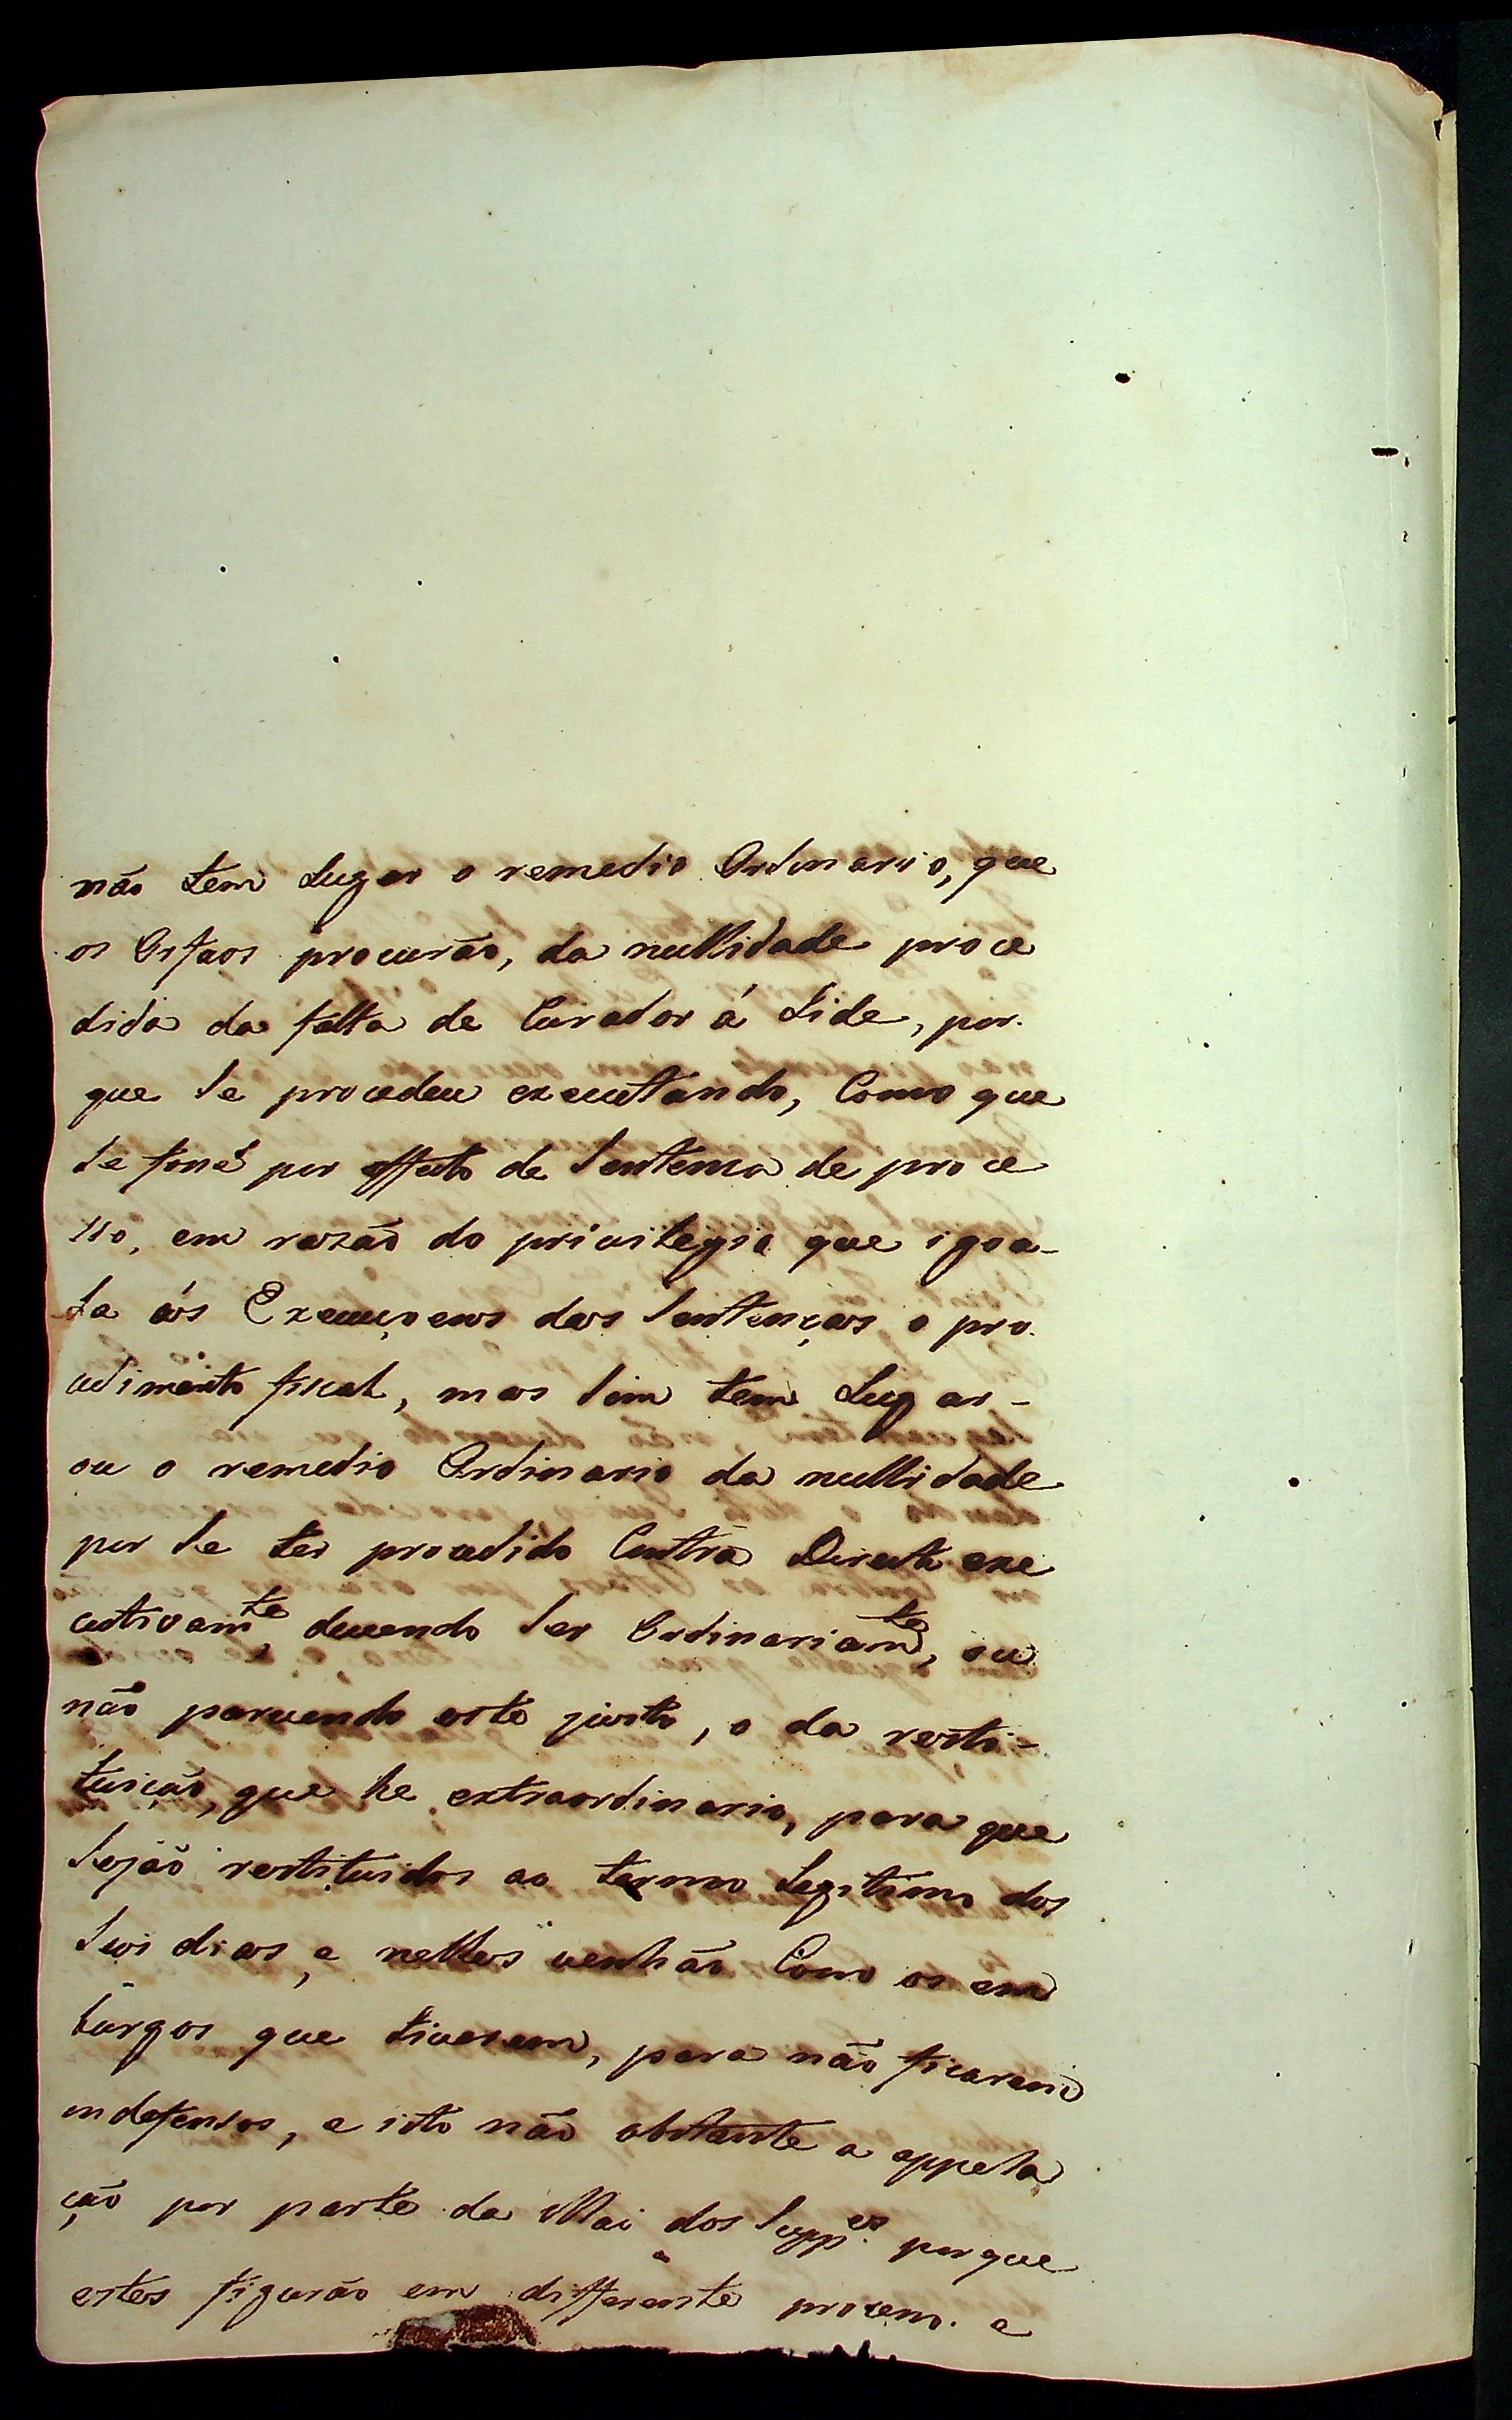 não tem Lugar o remedio Ordinario, que
os Orfaos procurão, da nullidade proce
dida da falta de Curador á Lide, por.
que se procedeu executando, Como que
se fose por effeito de Sentensa de proce
sso, em razão do privilegio que igoa-
la ás Execuçoens das Sentenças o pro.
cedimento fiscal, mas sim tem Lugar -
ou o remedio Ordinario da nullidade
por se ter procedido Contra Direito exe
cutivamte, devendo ser Ordinariamte, ou
não parecendo este justo, o da resti-
tuição, que he extraordinario, para que
sejão restituidos ao termo Legitimo dos
seis dias, e nelles venhão Como os em
bargos que tiverem, para não ficarem
indefensos, e isto não obstante a appela
ção por parte da Mai dos Suppes. porque
estes figurão em differente proceso. e